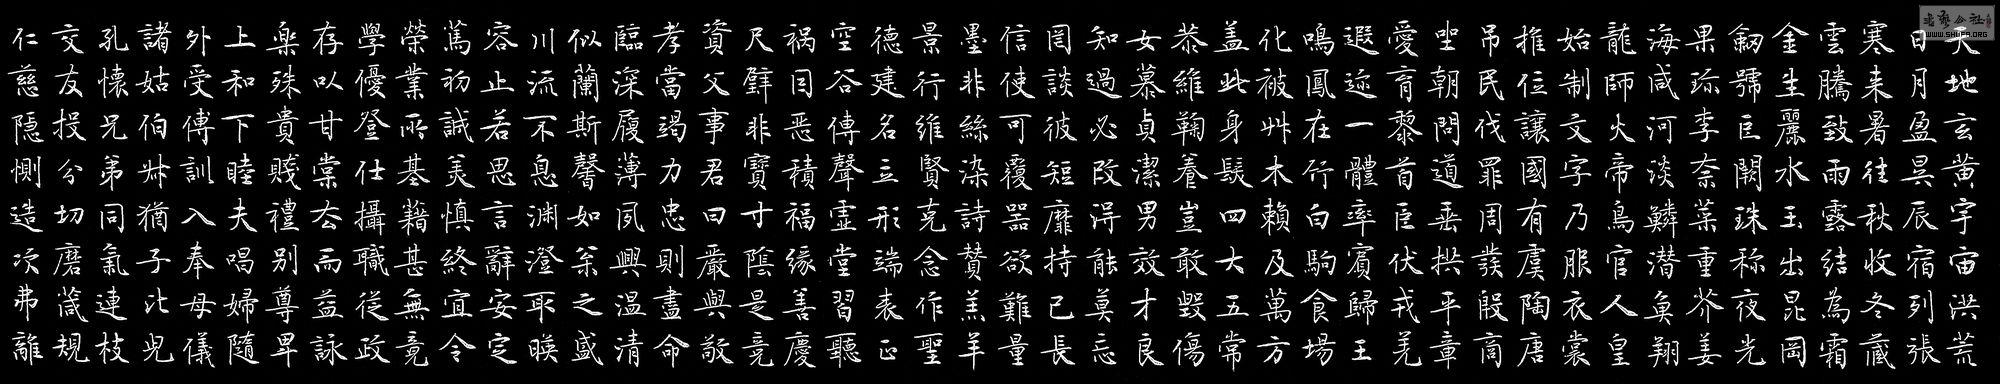 天地玄黄宇宙洪荒
日月盈昃辰宿列張
寒来暑往秋收冬蔵
雲騰致雨露結為霜
金生麗水玉出昆岡
劒號巨闕珠称夜光
果珎李柰菜重芥姜
海咸河淡鱗潜魚翔
龍師火帝鳥官人皇
始制文字乃服衣裳
推位讓國有虞陶唐
吊民伐罪周發殷商
坐朝問道垂拱平章
愛育黎首臣伏戎羌
遐迩一體率賓歸王
鳴鳳在行白駒食場
化被艸木賴及萬方
盖此身髮四大五常
恭維鞠養豈敢毀傷
女慕貞潔男效才良
知過必改得能莫忘
罔談彼短靡持己長
信使可覆器欲難量
墨非絲染詩賛羔羊
景行維賢克念作聖
德建名立形端表正
空谷傳聲虛堂習聽
禍因惡積福緣善慶
尺璧非寶寸陰是竞
資父事君曰嚴與敬
孝當竭力忠則盡命
臨深履薄夙興温清
似蘭斯馨如松之盛
川流不息渊澄取暎
容止若思言辭安定
篤初誠美慎終宜令
榮業所基藉甚無竟
學優登仕攝職從政
存以甘棠去而益詠
楽殊貴賤禮別尊卑
上和下睦夫唱婦隨
外受傅訓入奉母儀
諸姑伯叔猶子比兒
孔懐兄弟同氣連枝
交友投分切磨箴規
仁慈隱惻造次弗離
书艺公社
WWW.SHUFA.ORG